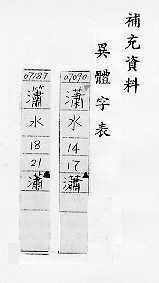 補充資料
異體字表
07090
瀟
水
14
17
瀟
07187
水
18
21
瀟